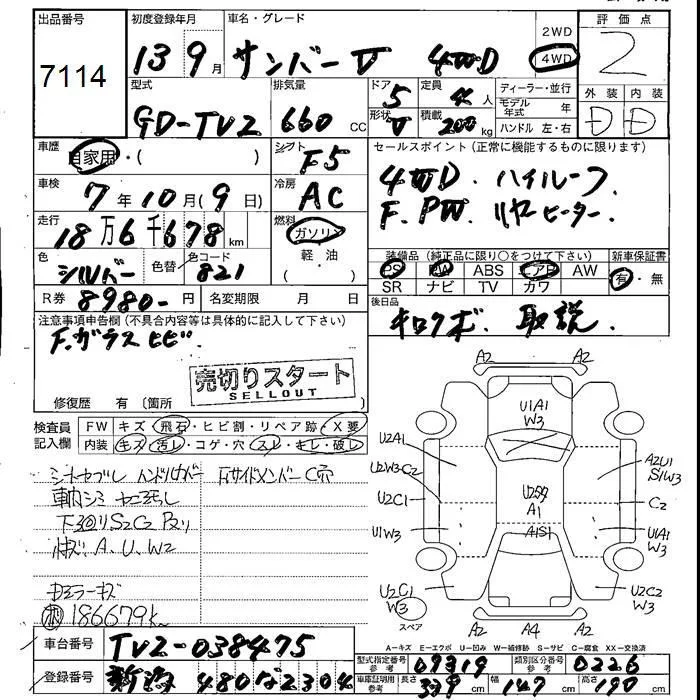 出品番号 初度登録年月 車名・グレード 2WD 評価点
7114 13 9月 サンバー V 4WD 4WD 2
型式 排気量 ドア 5 定員 4人 ディーラー・並行 外装 内装
GD-TV2 660 CC 形状 V 積載 200kg モデル年式 年 D D
ハンドル 左・右
車歴 自家用・( ) シフト F5 セールスポイント (正常に機能するものに限ります)
車検 7年10月(9日) 冷房 AC 4WD.ハイルーフ
走行 18万6千678km 燃料 ガソリン F.PW.リヤヒーター.
色 シルバー 色替 色コード 821 軽・油
装備品 (純正品に限り○をつけて下さい) 新車保証書
PS PW ABS エアB AW 有・無
SR ナビ TV カワ
R券 8980-円 名変期限 月 日 後日品
注意事項申告欄 (不具合内容等は具体的に記入して下さい) キロクボ. 取説.
F.ガラスヒビ.
売切りスタート
SELLOUT
修復歴 有 〔箇所
検査員 FW キズ・飛石・ヒビ割・リペア跡・X要
記入欄 内装 キズ・汚し・コゲ・穴・スレ・キレ・破し
A2 A2
U1A1
W3
U2A1
U2W3C2
U2C1
U1W3
U2C1
W3
A2U1
S1W3
C2
U1A1
W3
U2C2
W3
A1
A1S1
スペア
A2 A4 A2
車内シミ
下廻りS2C2
A、U、W2
186679k
A-キズ E-エクボ U-凹み W-補修跡 S-サビ C-腐食 XX-交換済
車台番号 TV2-038475 型式指定番号 参考 09319 類別区分番号 参考 0226
登録番号 新潟 480 な 2304 車庫証明用 参考 長さ 339cm 幅 147cm 高さ 190cm